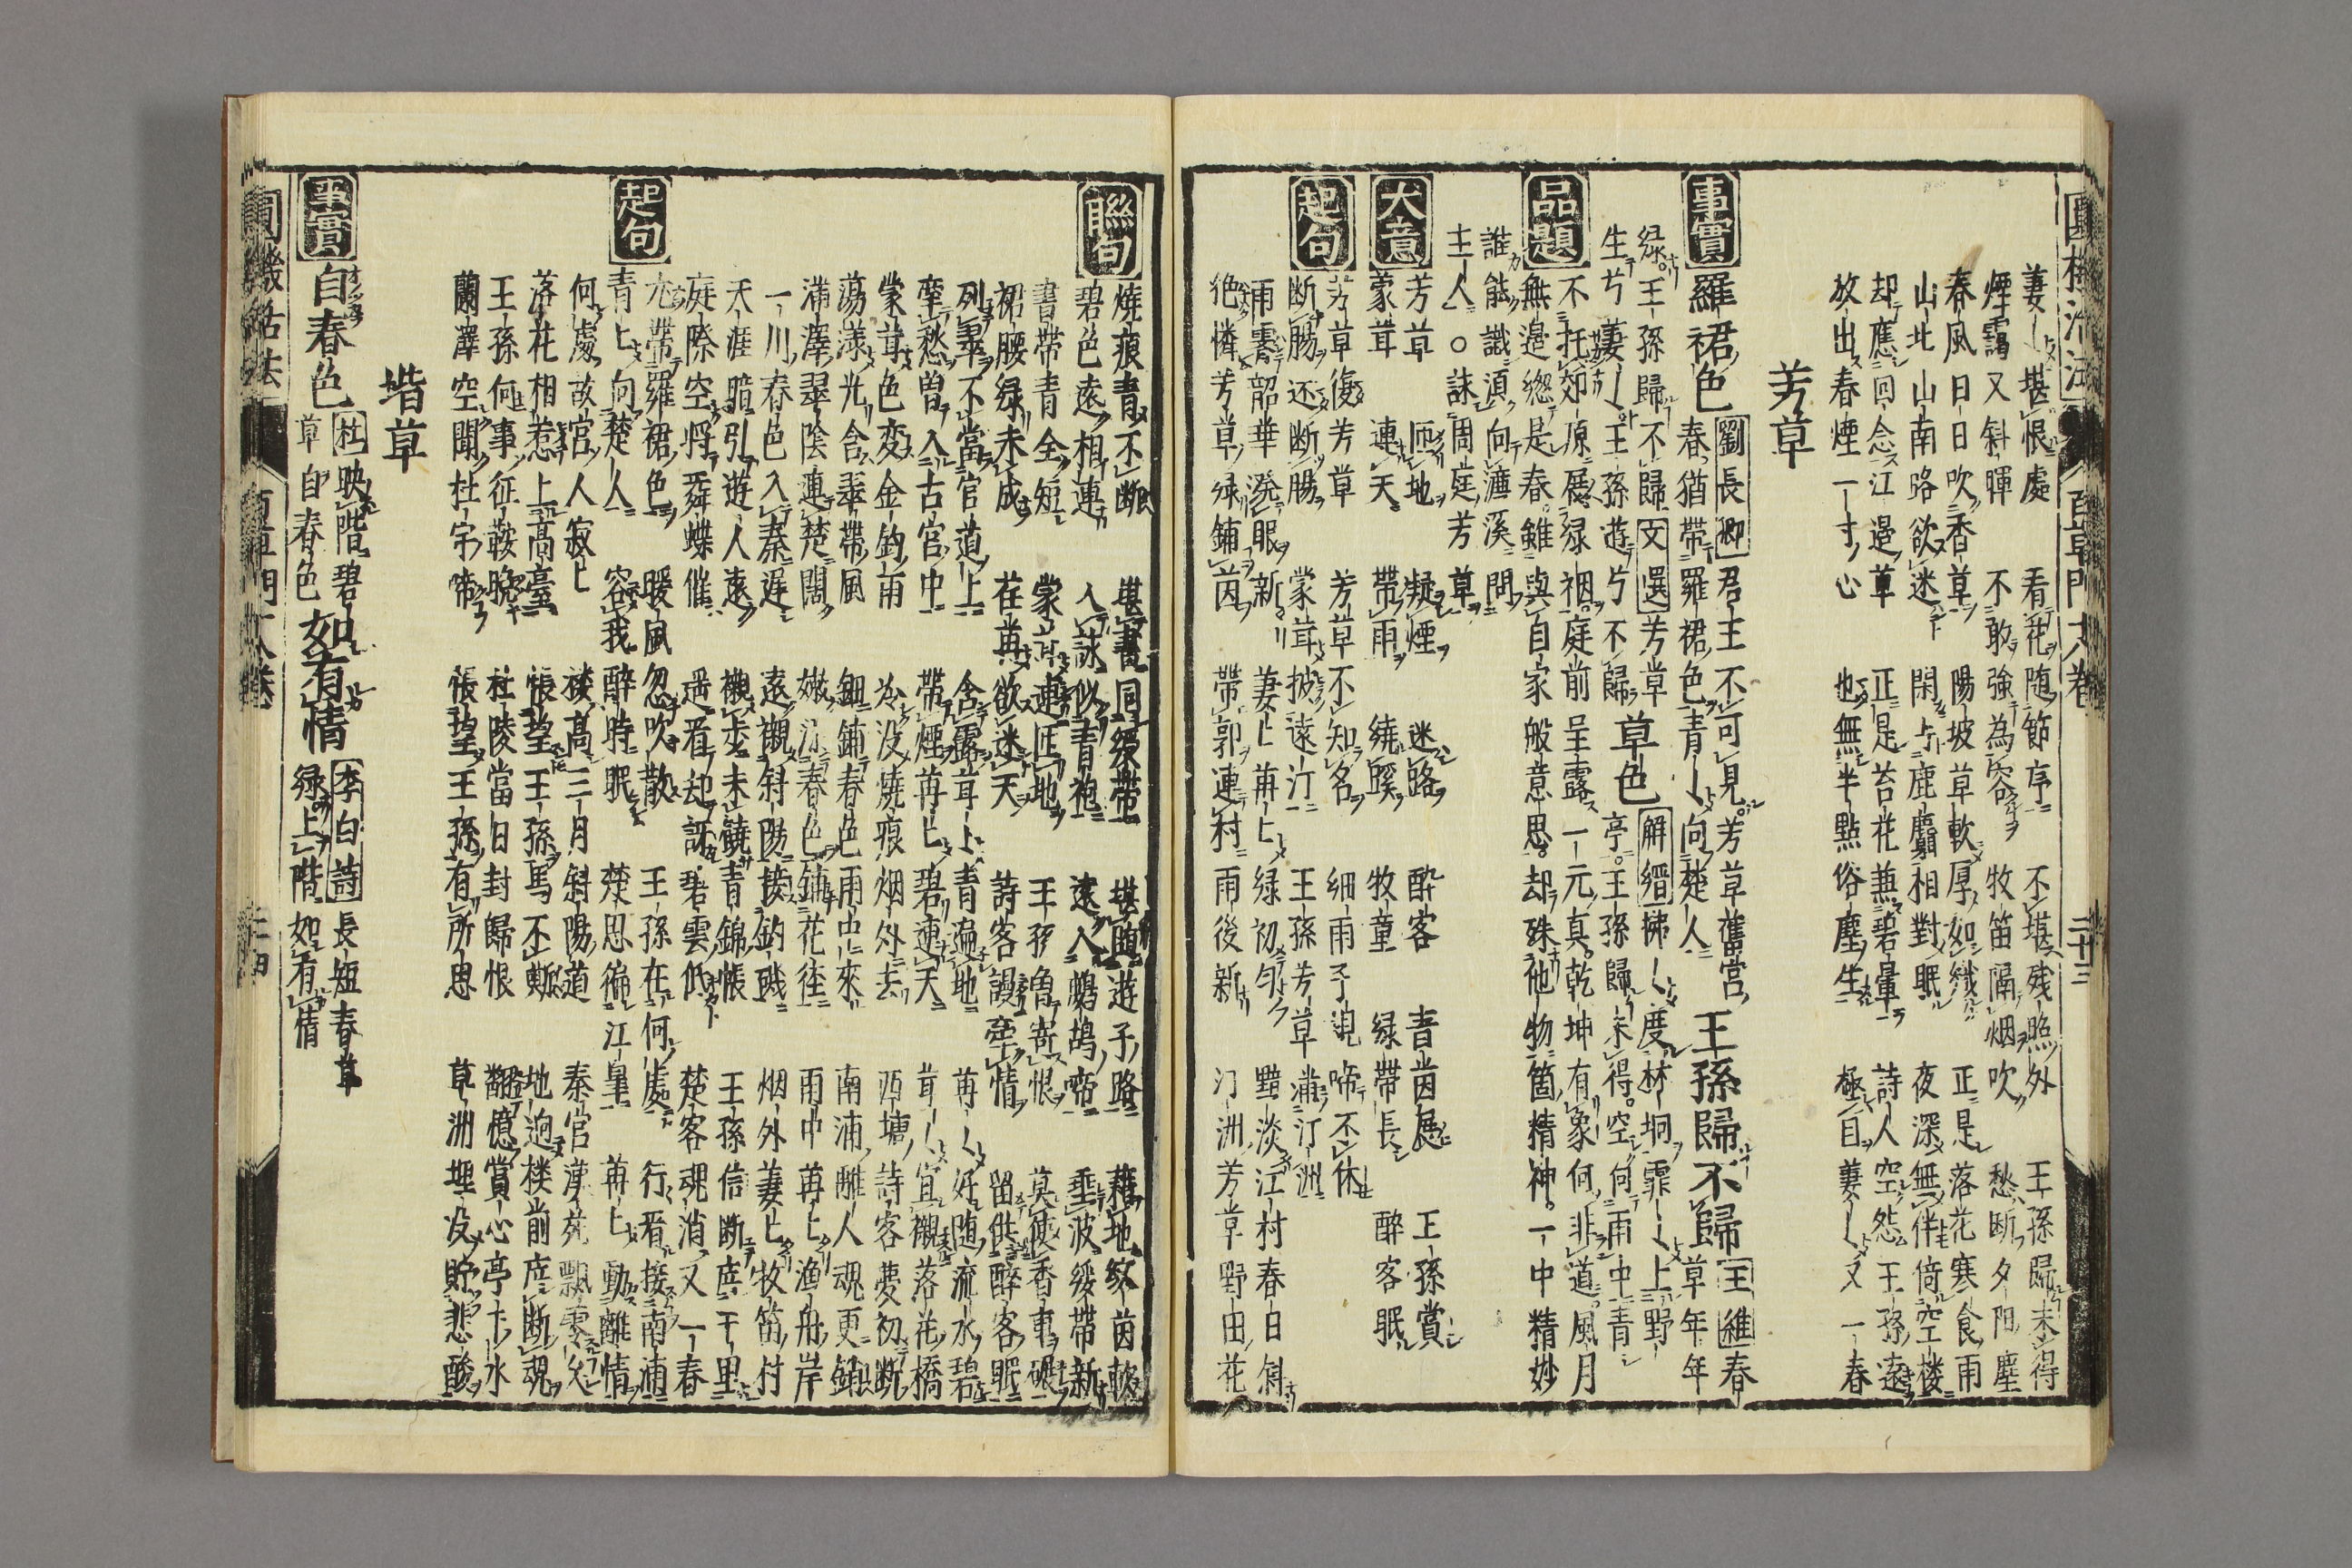 圓機活法 百草門 大卷 二十三
妻〻堪恨處 看花随節序 不堪残照外 王孫歸未得
煙靄又斜暉 不敢強為容 牧笛隔烟吹 愁断夕阳塵
春風日日吹香草 陽坡草軟厚如織 正是落花寒食雨
山北山南路欲迷 閑与鹿麛相對眠 夜深無伴倚空楼
却應回念江邉草 正是苔花兼碧暈 詩人空怨王孫遠
放出春煙一寸心 也無半點俗塵生 極目萋〻又一春
芳草
事實 羅裙色 劉長卿 君王不可見芳草舊宮
春猶帶羅裙色青〻向楚人 王孫歸不歸 王維 春草年年
緑王孫歸不歸 文選 芳草
生兮萋〻王孫遊兮不歸 草色 解縉 拂〻度林坰霏〻上野
亭王孫歸未得空何雨中青
品題 不托郊原展緑裀庭前呈露一元真乾坤有象何非道風月
無邉縂是春雖與自家般意思却殊他物箇精神一中精妙
誰能識湏向濂溪問
主人○詠周庭芳草
大意 芳草 匝地 凝煙 迷路 酔客 青茵展 王孫賞
蒙茸 連天 帶雨 繞蹊 牧童 緑帶長 醉客眠
起句 芳草復芳草 芳草不知名 細雨子規啼不休
断腸还断腸 蒙茸披遠汀 王孫芳草滿汀洲
雨霽韶華溌眼新 萋〻苒〻緑初匀 黯淡江村春日斜
绝憐芳草緑鋪茵 帶郭連村雨後新 汀洲芳草野田花
聯句 燒痕青不断 堪書同緩帶 堪随遊子路 藉地紋茵軟
碧色遠相連 入詠似青袍 遠入鷓鴣啼 垂波緩帶新
書帶青全短 蒙茸連匝地 王孫魯寄恨 莫使香車碾
裙腰緑未成 荏苒欲迷天 詩客謾牽情 留供醉客眠
列翠不當官道上 含露茸〻青遍地 苒〻好随流水碧
牽愁曽入古宮中 帶煙苒〻碧連天 茸〻宜襯落花橋
蒙茸色変金鈎雨 冷没燒痕烟外去 西塘詩客夢初断
蕩漾光含翠帶風 細鋪春色雨中來 南浦離人魂更銷
滿澤翠陰連楚闊 嫩沿春色鋪花徑 雨中苒〻渔舟岸
一川春色入秦遥 遠襯斜陽接釣磯 烟外萋〻牧笛村
天涯暗引遊人遠 襯步未饒青錦帳 王孫信断庭千里
庭際空将舞蝶催 遥看却訝碧雲低 楚客魂消又一春
起句 尤帶羅裙色 暖風忽吹散 王孫在何處 行看接南浦
青〻向楚人 容我醉時眠 楚思徧江皐 苒〻動離情
何處故宮人寂〻 楼高三月斜陽道 秦官漢苑飄零久
落花相惹上高臺 悵望王孫馬不嘶 地迥楼前庭断魂
王孫何事征鞍晚 杜陵當日封歸恨 翻憶賞心亭下水
蘭澤空聞杜宇啼 悵望王孫有所思 草洲埋没貯悲酸
堦草
事實 自春色 杜 映階碧草自春色 如有情 李白詩 長短春草緑上階如有情
圓機活法 百草門 大卷 二十四